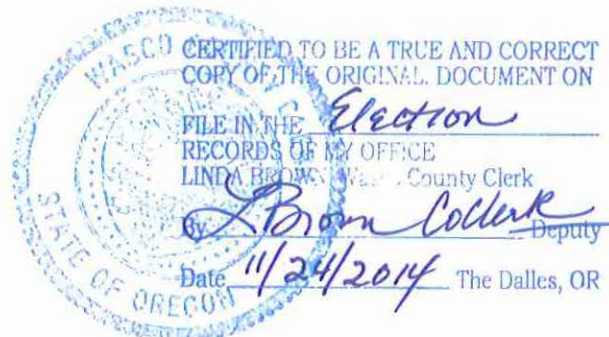 WASCO
STATE OF OREGON
CERTIFIED TO BE A TRUE AND CORRECT
COPY OF THE ORIGINAL. DOCUMENT ON
FILE IN THE Election
RECORDS OF MY OFFICE
LINDA BROWN County Clerk
By LBrown CoClerk Deputy
Date 11/24/2014 The Dalles, OR